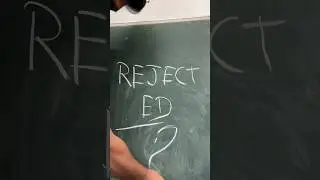 REJECT
ED
?